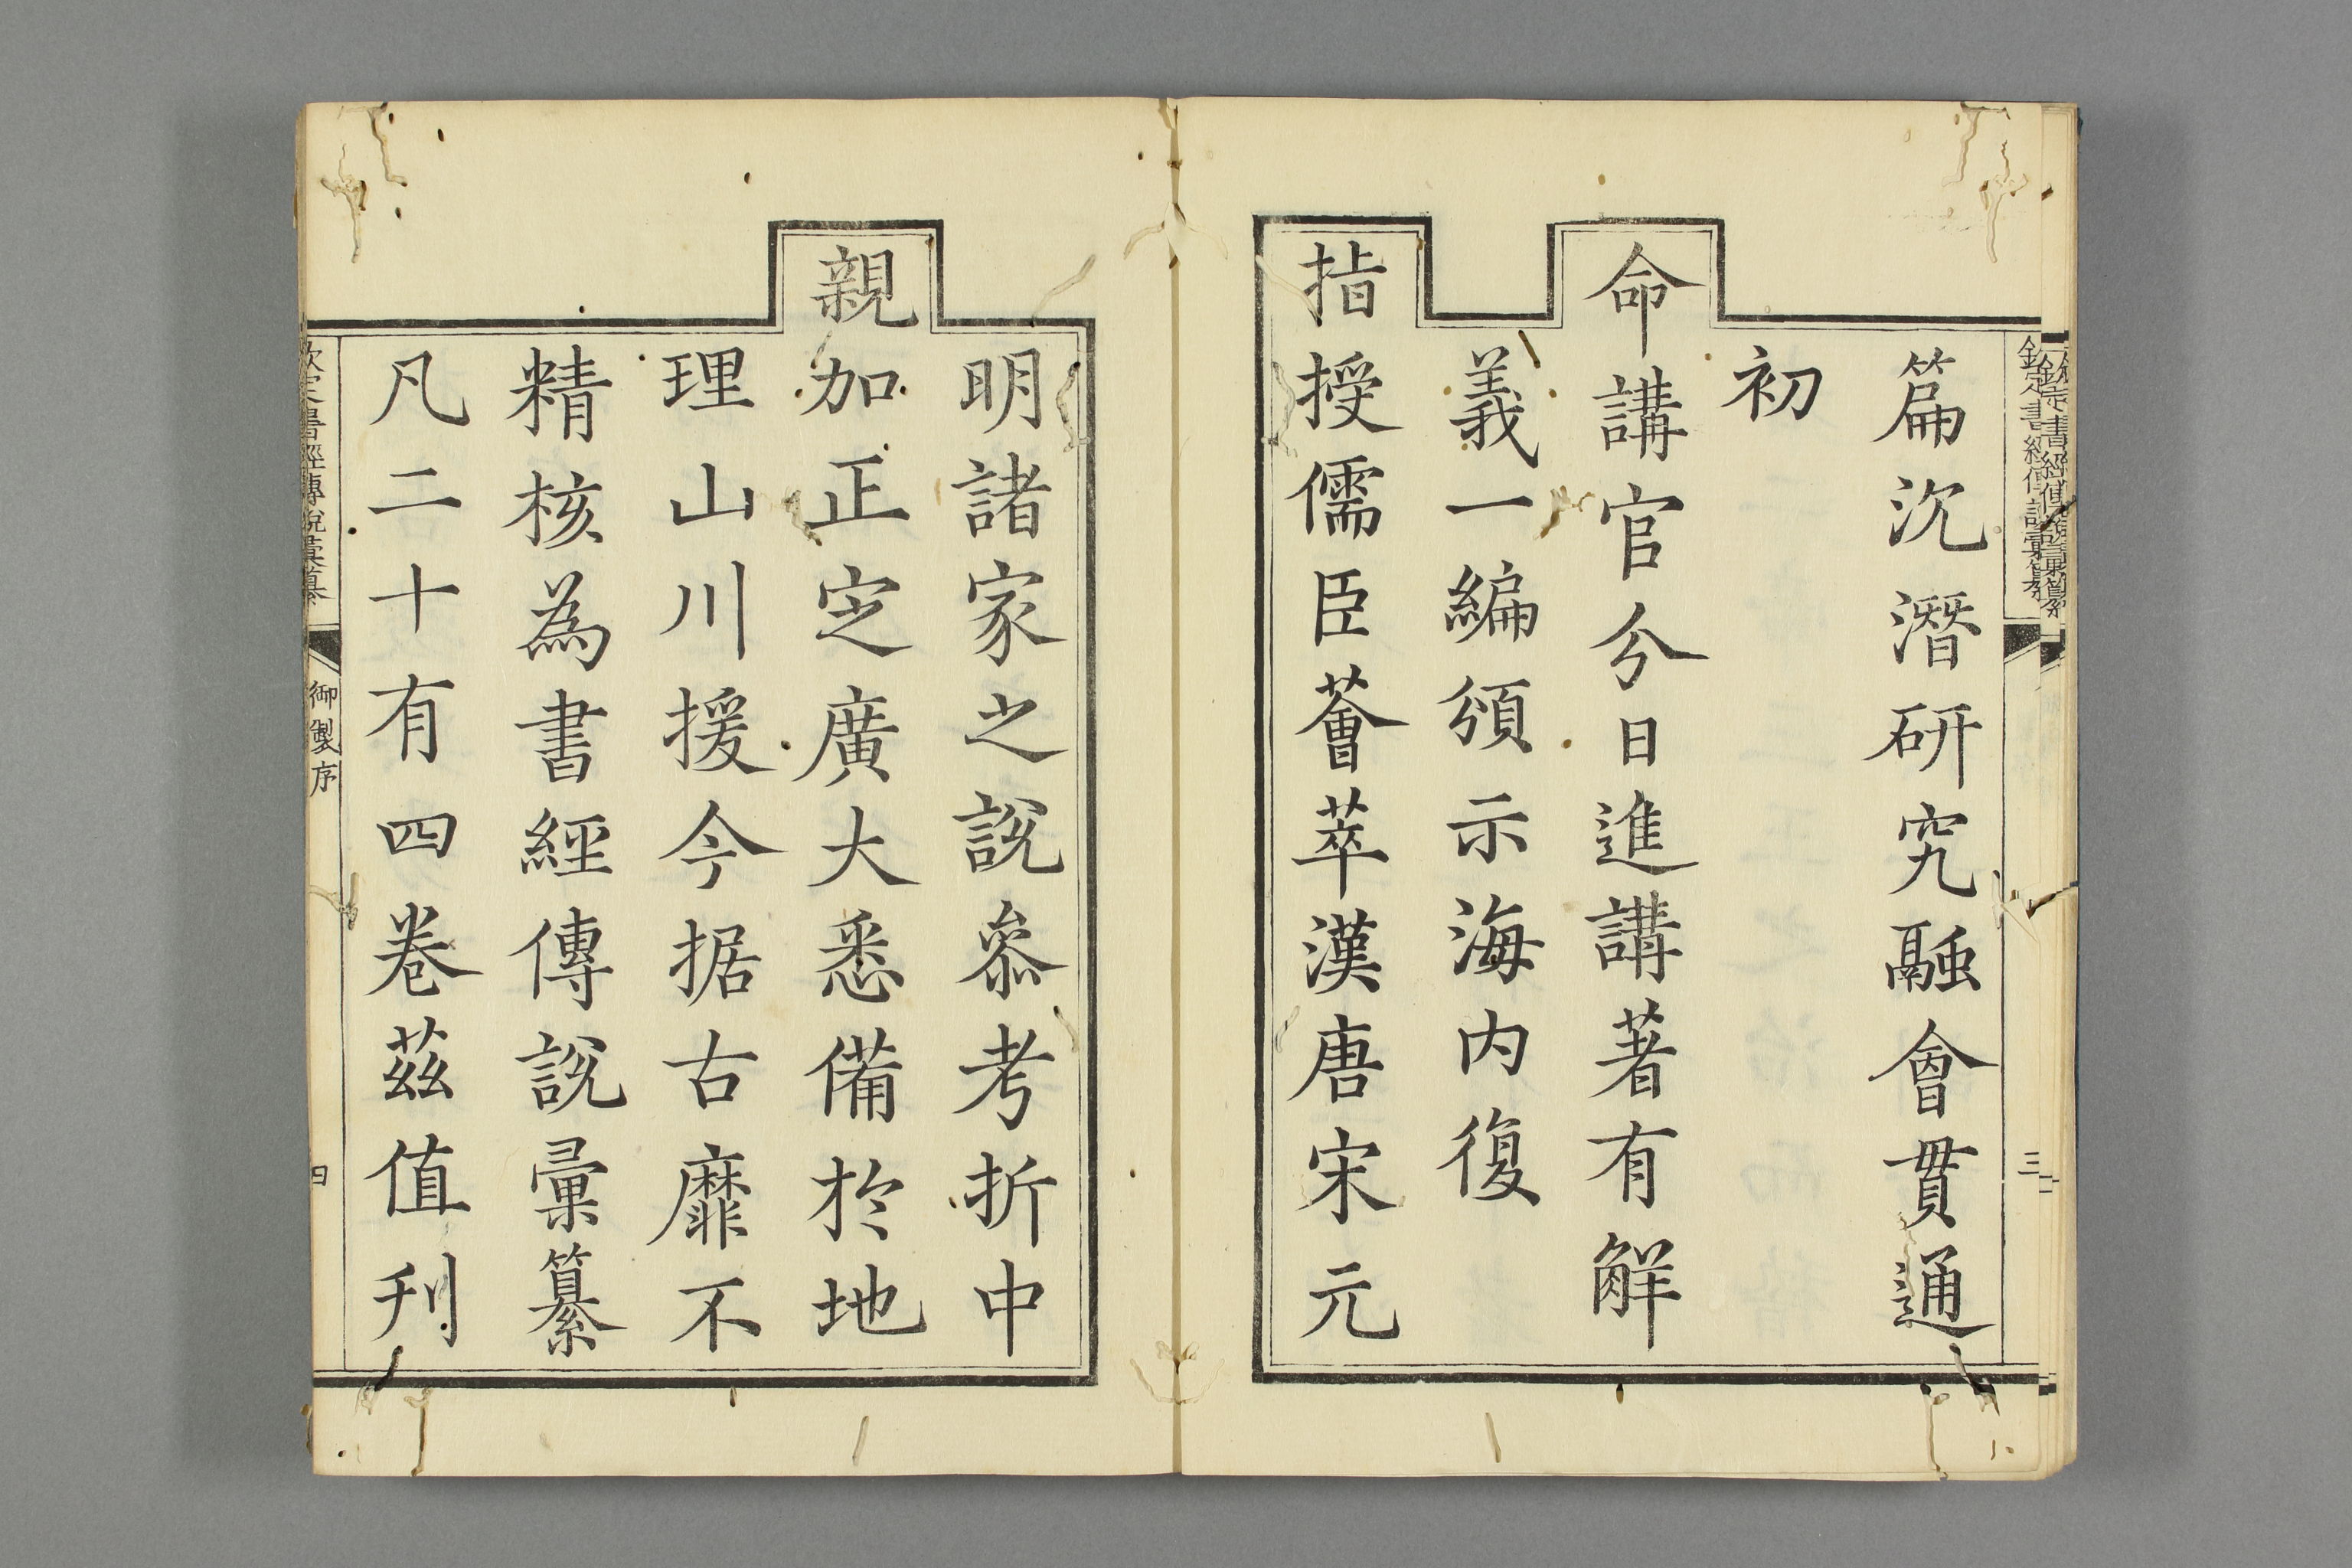 欽定書經傳說彙纂
三
篇沉潛研究融會貫通
初
命講官分日進講著有解
義一編頒示海內復
指授儒臣薈萃漢唐宋元
明諸家之說參考折中
親加正定廣大悉備於地
理山川援今据古靡不
精核為書經傳說彙纂
凡二十有四卷茲值刊
欽定書經傳說彙纂
御製序
四